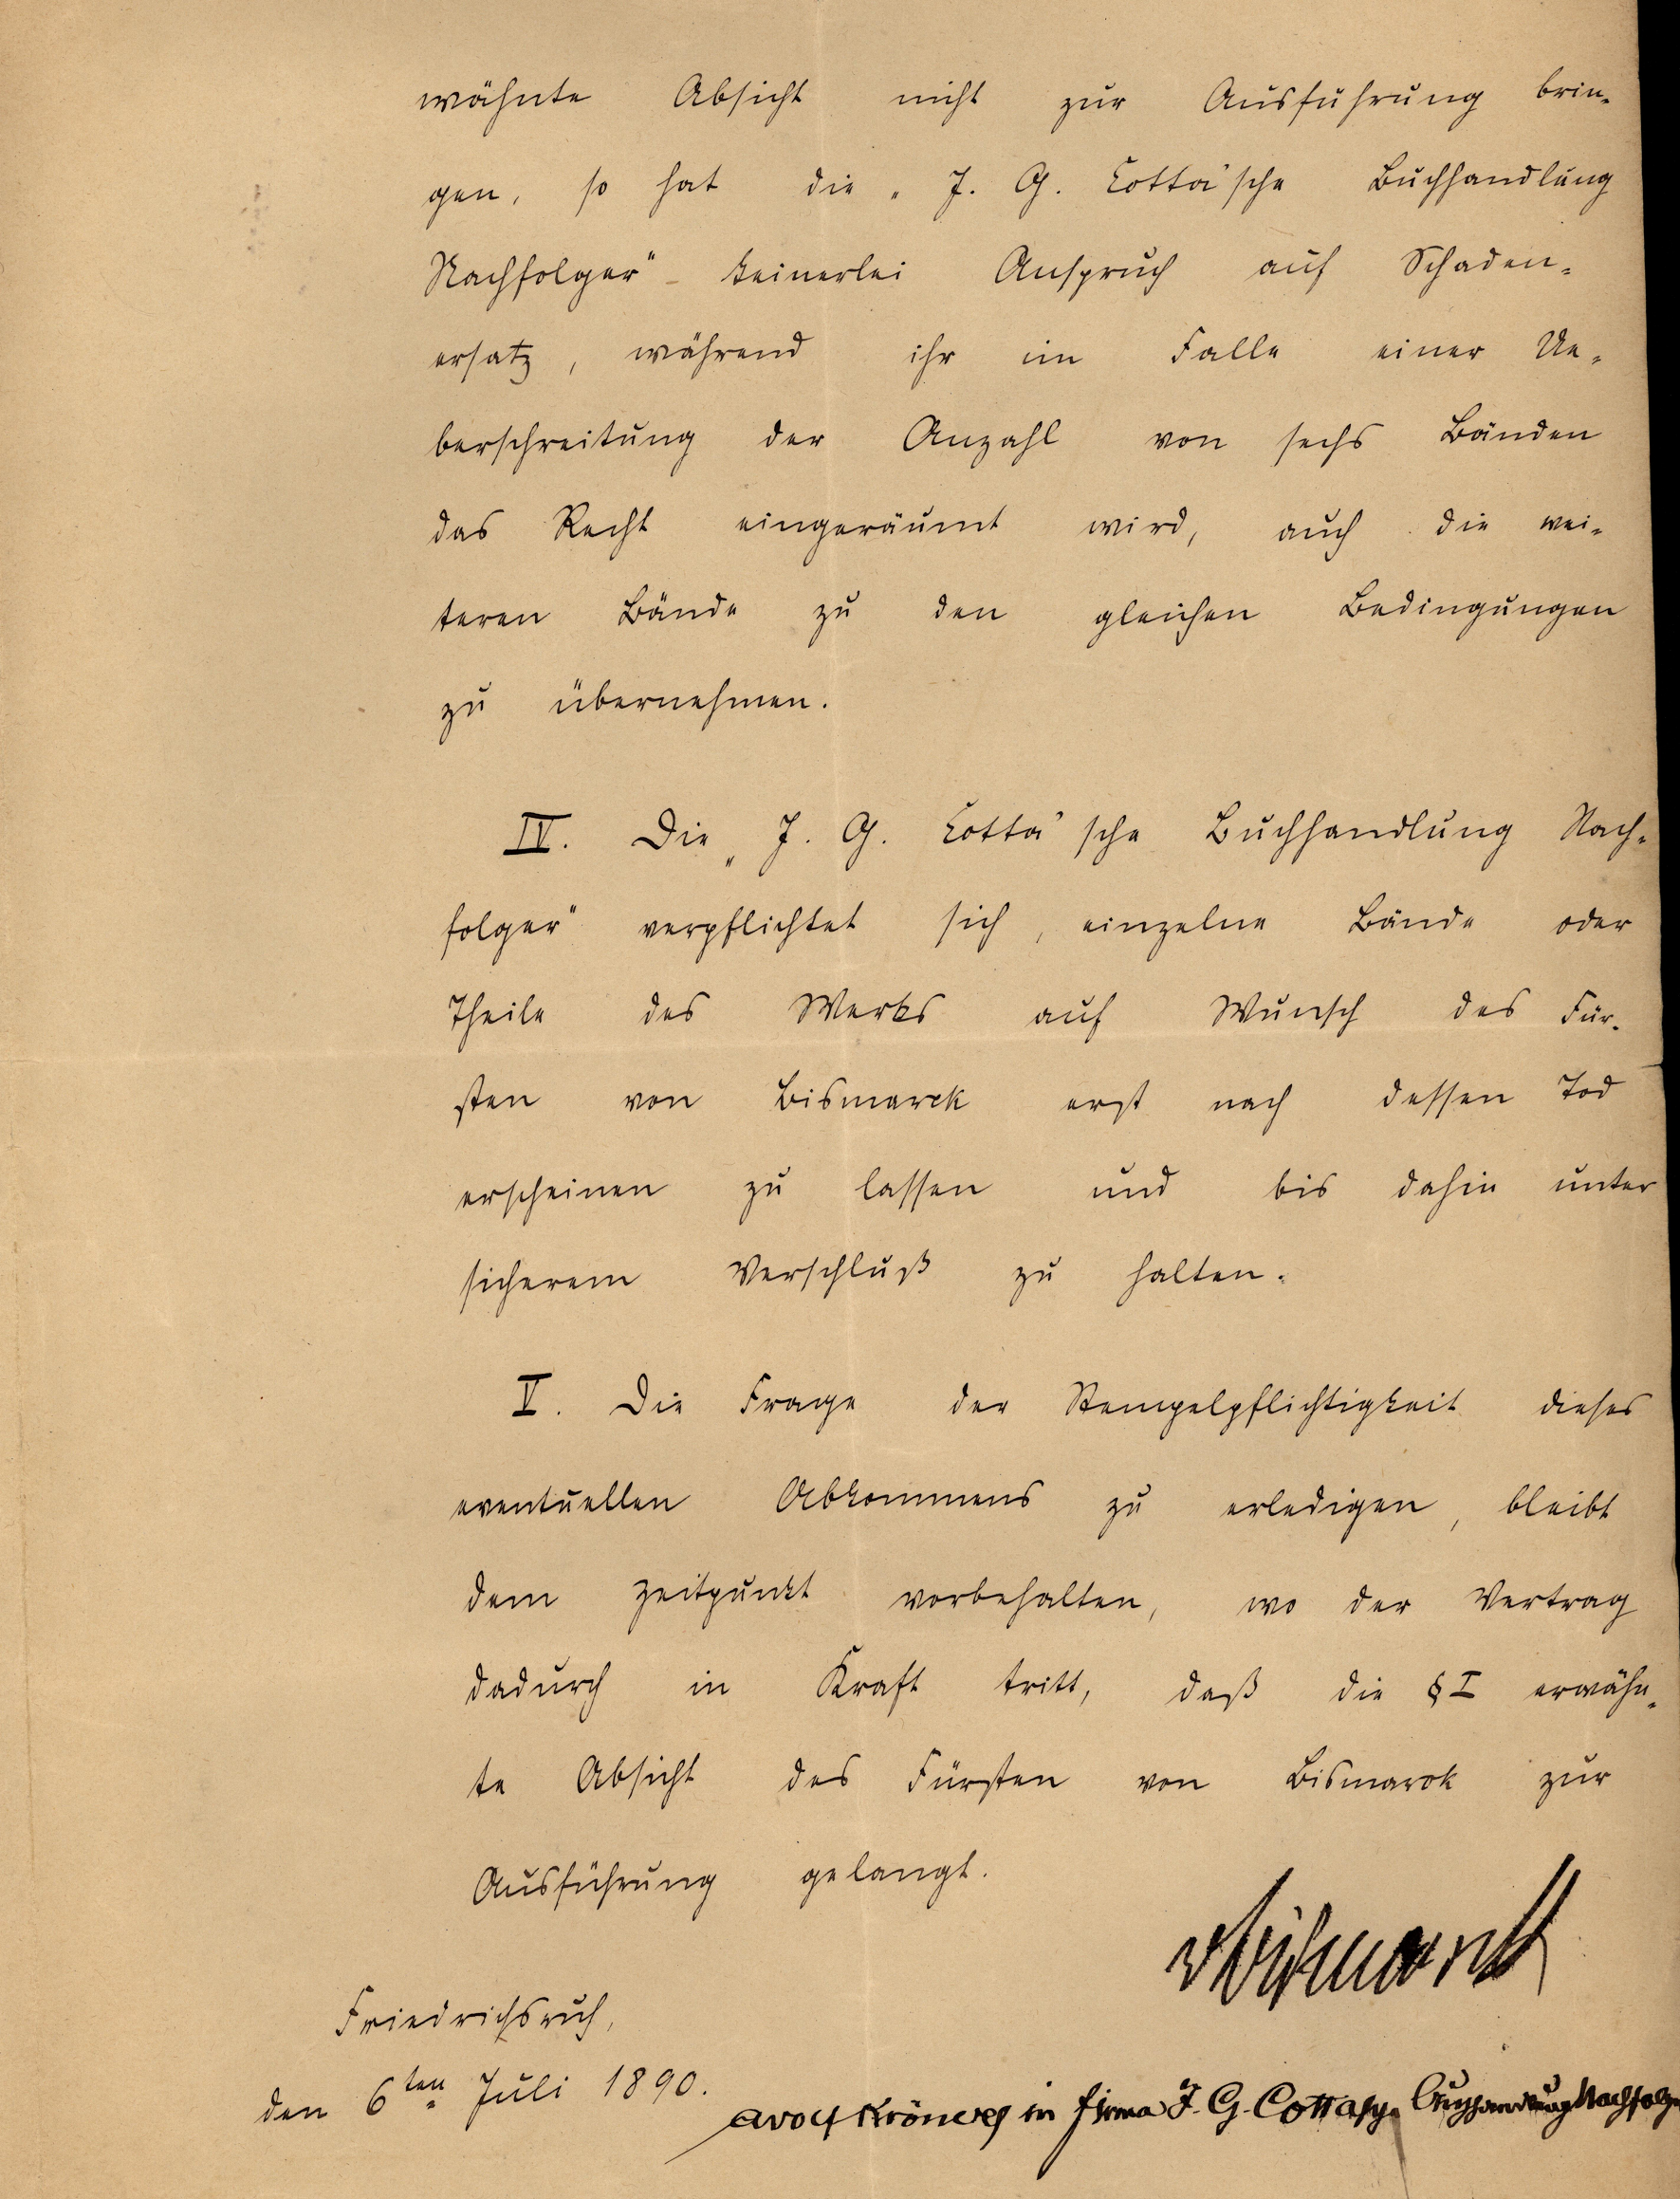 wähnte Absicht nicht zur Ausführung brin-
gen, so hat die „J. G. Cotta'sche Buchhandlung
Nachfolger" keinerlei Anspruch auf Schaden-
ersatz, während ihr im Falle einer Ue-
berschreitung der Anzahl von sechs Bänden
das Recht eingeräumt wird, auch die wei-
teren Bände zu den gleichen Bedingungen
zu übernehmen.
IV. Die „J. G. Cotta'sche Buchhandlung Nach-
folger" verpflichtet sich, einzelne Bände oder
Theile des Werks auf Wunsch des Für-
sten von Bismarck erst nach dessen Tod
erscheinen zu lassen und bis dahin unter
sicherem Verschluß zu halten.
V. Die Frage der Stempelpflichtigkeit dieses
eventuellen Abkommens zu erledigen, bleibt
dem Zeitpunkt vorbehalten, wo der Vertrag
dadurch in Kraft tritt, daß die § I erwähn-
te Absicht des Fürsten von Bismarck zur
Ausführung gelangt.
v Bismarck
Friedrichsruh,
den 6ten Juli 1890.
Adolf Kröner in Firma J. G. Cottasche Buchhandlung Nachfolger